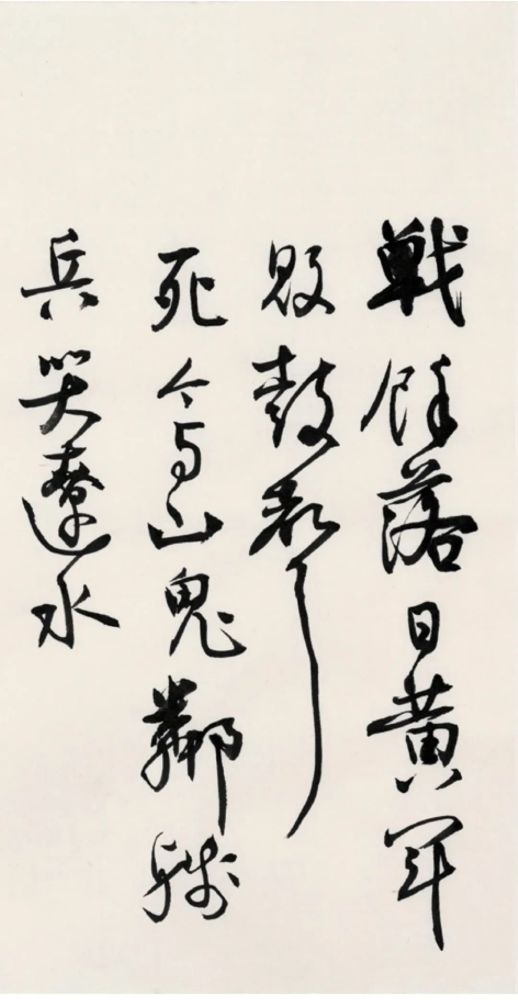 戰餘落日黃軍
敗鼓聲
死今与山鬼鄰殘
兵哭遼水